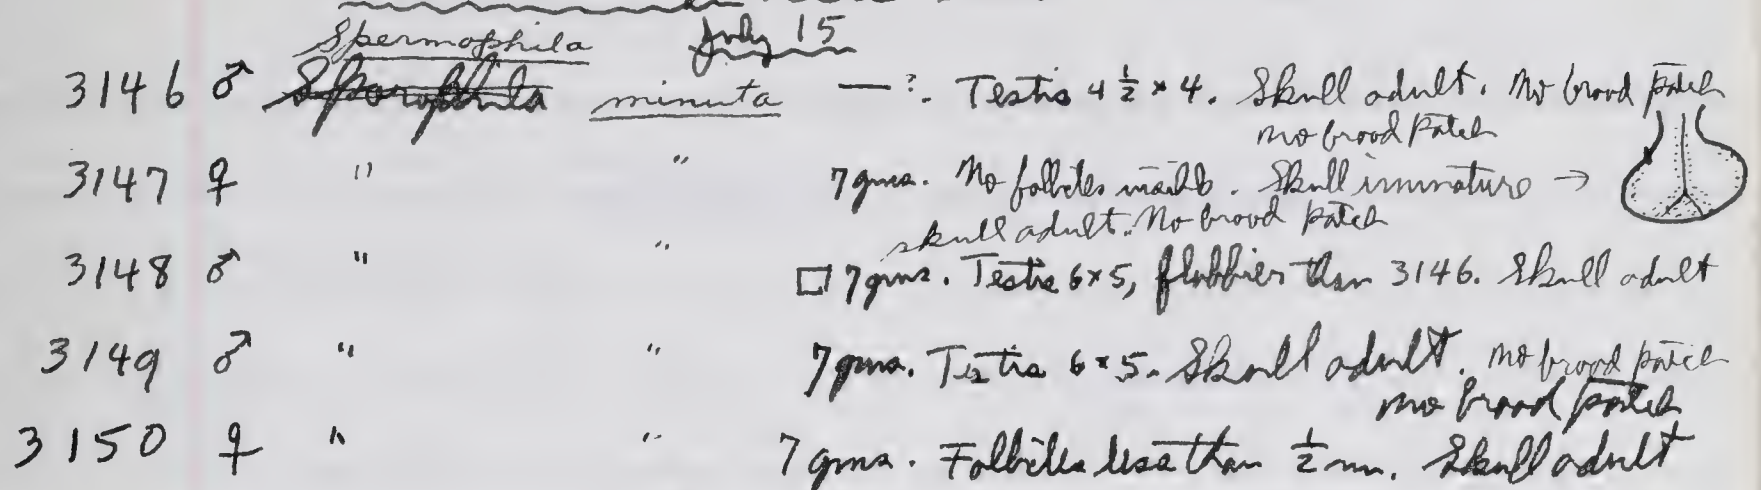 July 15
Spermophila
3146 ♂ Sporophila minuta —?. Testis 4 1/2 × 4. Skull adult. No brood patch
no brood patch
3147 ♀ " " 7 gms. No follicles visible. Skull immature →
skull adult. No brood patch
3148 ♂ " " □ 7 gms. Testis 6×5, flabbier than 3146. Skull adult
3149 ♂ " " 7 gms. Testis 6×5. Skull adult. no brood patch
no brood patch
3150 ♀ " " 7 gms. Follicles less than 1/2 mm. Skull adult